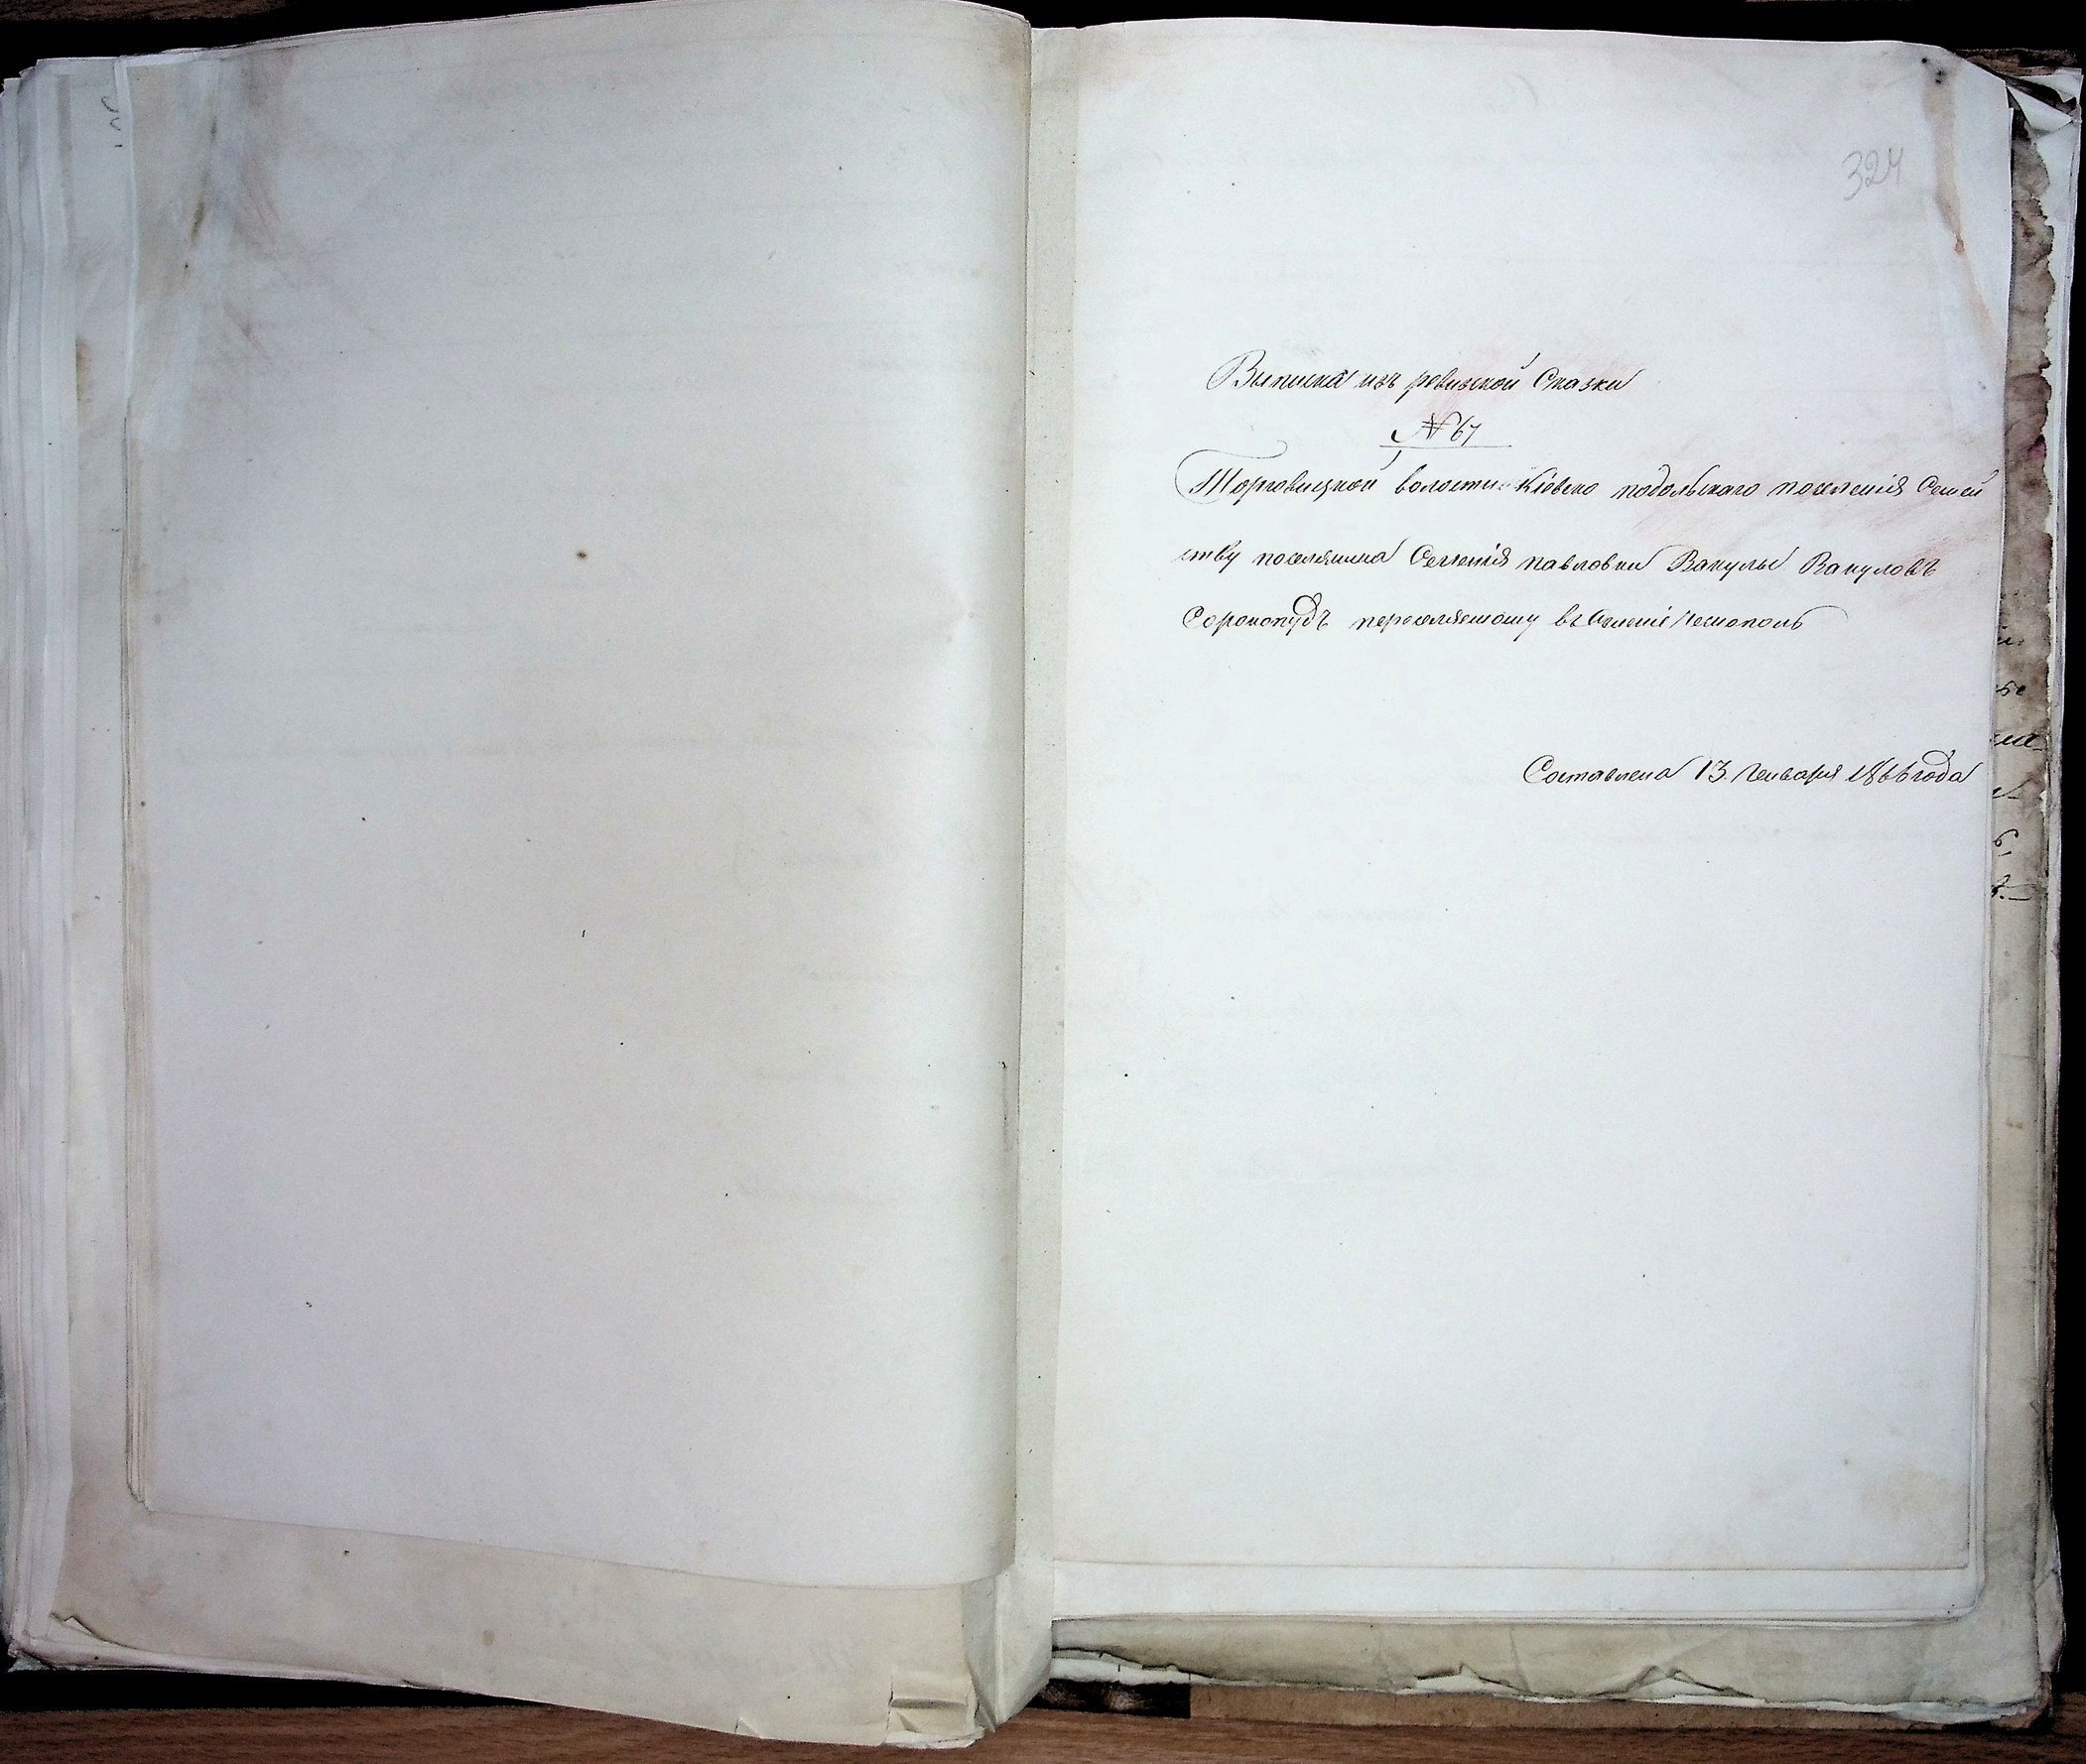 324
Выписка изъ ревизской Сказки
№ 67
Торговицкой волости Кіевско подольскаго поселенія Семей
ству поселянина Семенія павловки Вакулы Вакуловъ
Сорокопудъ переселяемому въ имение
Составлена 13. Генваря 1866 года